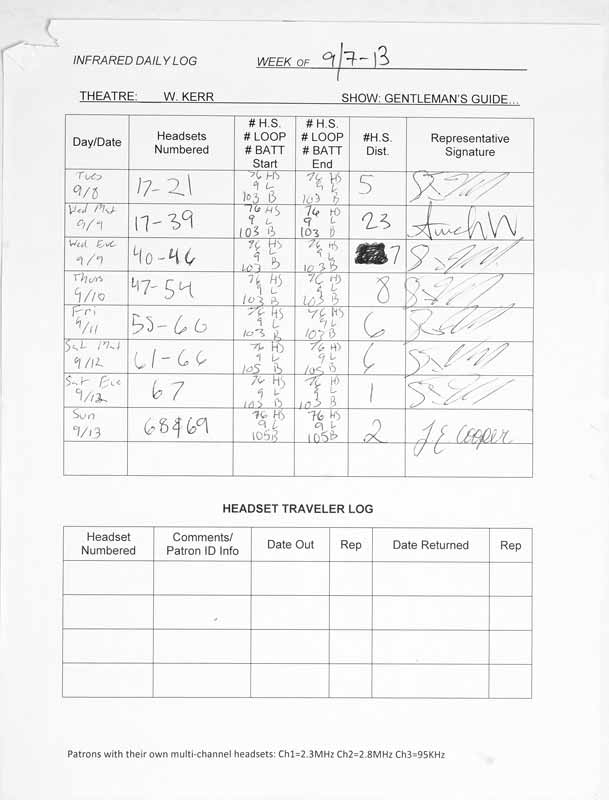 INFRARED DAILY LOG WEEK OF 9/7-13
THEATRE: W. KERR SHOW: GENTLEMAN'S GUIDE...
Day/Date Headsets Numbered # H.S. # LOOP # BATT Start # H.S. # LOOP # BATT End #H.S. Dist. Representative Signature
Tues 9/8 17-21 76 HS 9 L 103 B 76 HS 9 L 103 B 5
Wed Mat 9/9 17-39 76 HS 9 L 103 B 76 HS 9 L 103 B 23
Wed Eve 9/9 40-46 76 HS 9 L 103 B 76 HS 9 L 103 B 7
Thurs 9/10 47-54 76 HS 9 L 103 B 76 HS 9 L 103 B 8
Fri 9/11 55-60 76 HS 9 L 103 B 76 HS 9 L 103 B 6
Sat Mat 9/12 61-66 76 HS 9 L 105 B 76 HS 9 L 105 B 6
Sat Eve 9/12 67 76 HS 9 L 103 B 76 HS 9 L 103 B 1
Sun 9/13 68&69 76 HS 9 L 105B 76 HS 9 L 105B 2 J E Cooper
HEADSET TRAVELER LOG
Headset Numbered Comments/ Patron ID Info Date Out Rep Date Returned Rep
Patrons with their own multi-channel headsets: Ch1=2.3MHz Ch2=2.8MHz Ch3=95KHz